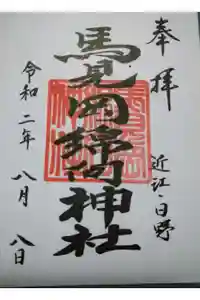 奉拝
近江・日野
馬見岡綿向神社
令和二年八月八日